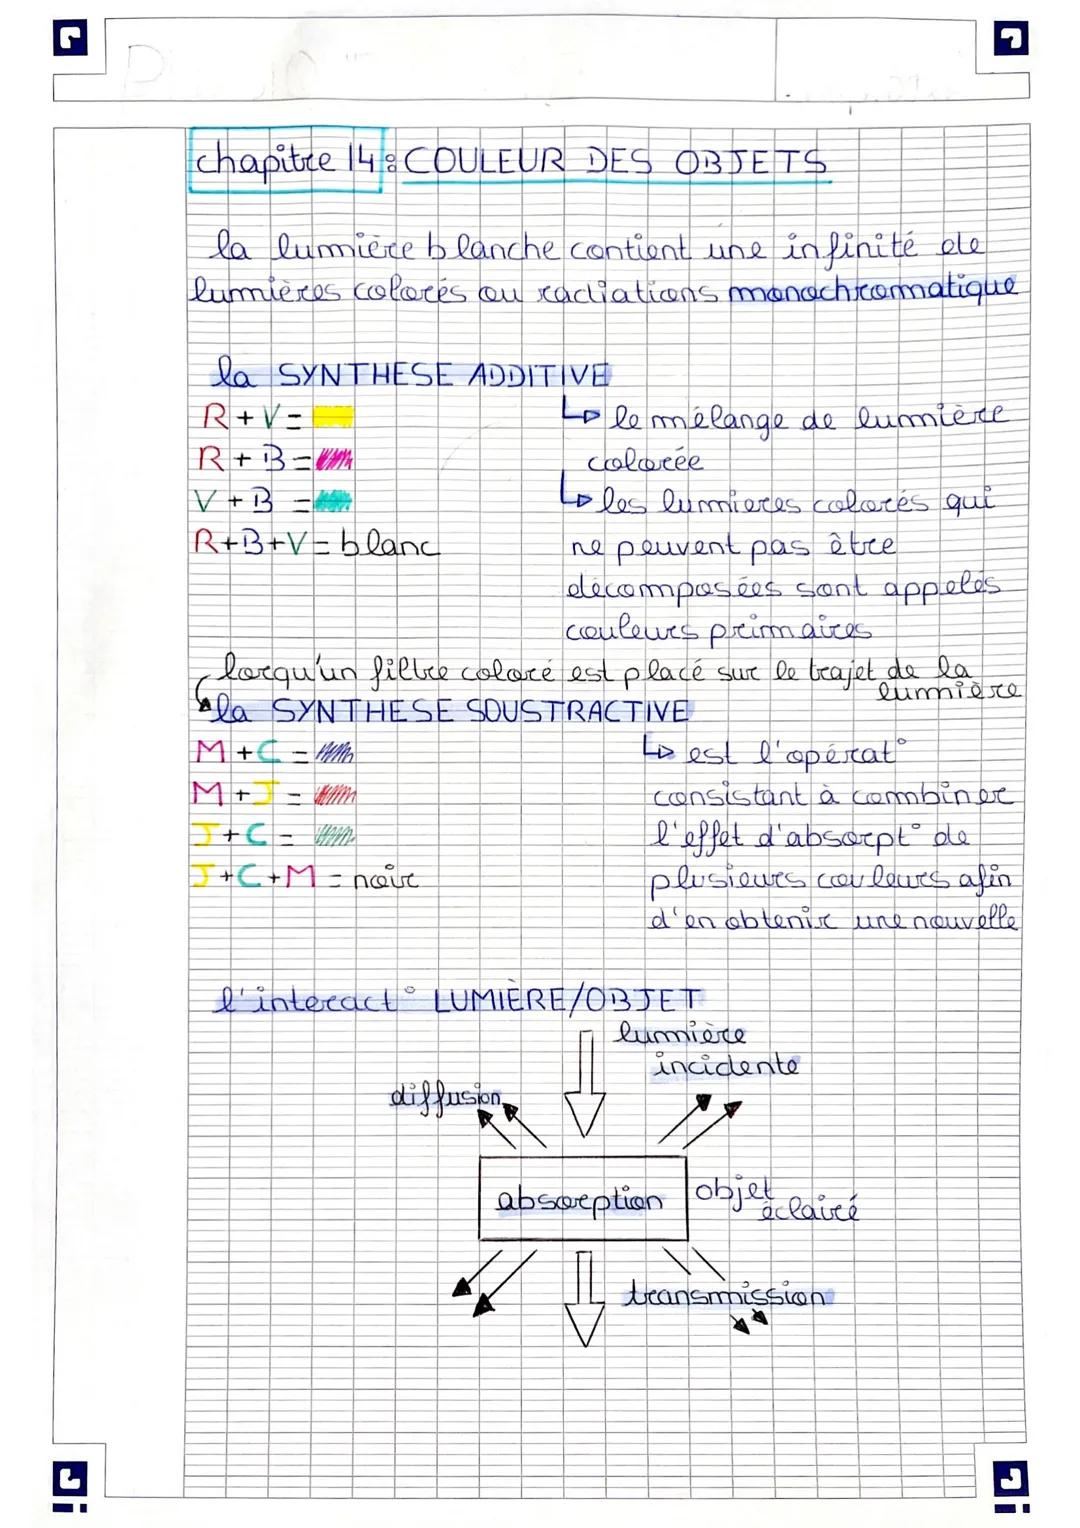 chapitre 14 : COULEUR DES OBJETS
la lumière blanche contient une infinité de
lumières colorés ou radiations monochromatique
la SYNTHESE ADDITIVE
R + V =
R + B =
V + B =
R+B+V = blanc
↳ le mélange de lumière
colorée
↳ les lumieres colorés qui
ne peuvent pas être
décomposées sont appelés
couleurs primaires
lorqu'un filtre coloré est placé sur le trajet de la
lumière
la SYNTHESE SOUSTRACTIVE
M + C =
M + J =
J + C =
J + C + M = noir
↳ est l'opérat°
consistant à combiner
l'effet d'absorpt° de
plusieurs couleurs afin
d'en obtenir une nouvelle
l'interact° LUMIÈRE/OBJET
lumière
incidente
diffusion
absorption
objet
éclairé
transmission